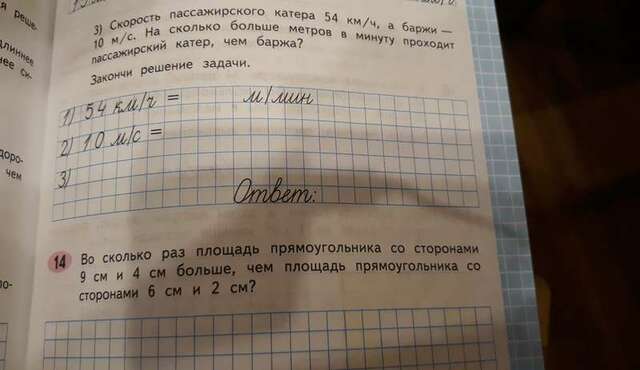 3) Скорость пассажирского катера 54 км/ч, а баржи —
10 м/с. На сколько больше метров в минуту проходит
пассажирский катер, чем баржа?
Закончи решение задачи.
1) 54 км/ч = м/мин
2) 10 м/с =
3)
Ответ:
14 Во сколько раз площадь прямоугольника со сторонами
9 см и 4 см больше, чем площадь прямоугольника со
сторонами 6 см и 2 см?